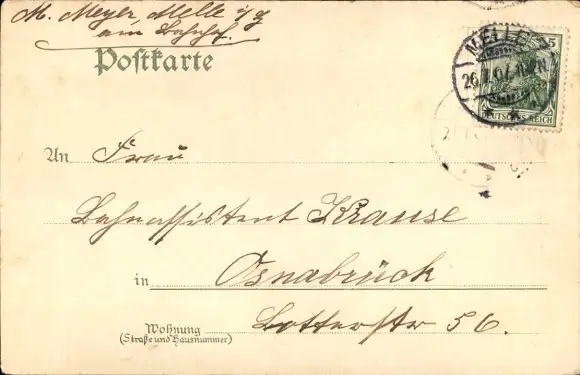 M. Meyer, Melle i/H
am Bahnhof.
Postkarte
MELLE
5
DEUTSCHES REICH
An Frau
Bahnassistent Krause
in Osnabrück
Wohnung
(Straße und Hausnummer)
Lotterstr 56.